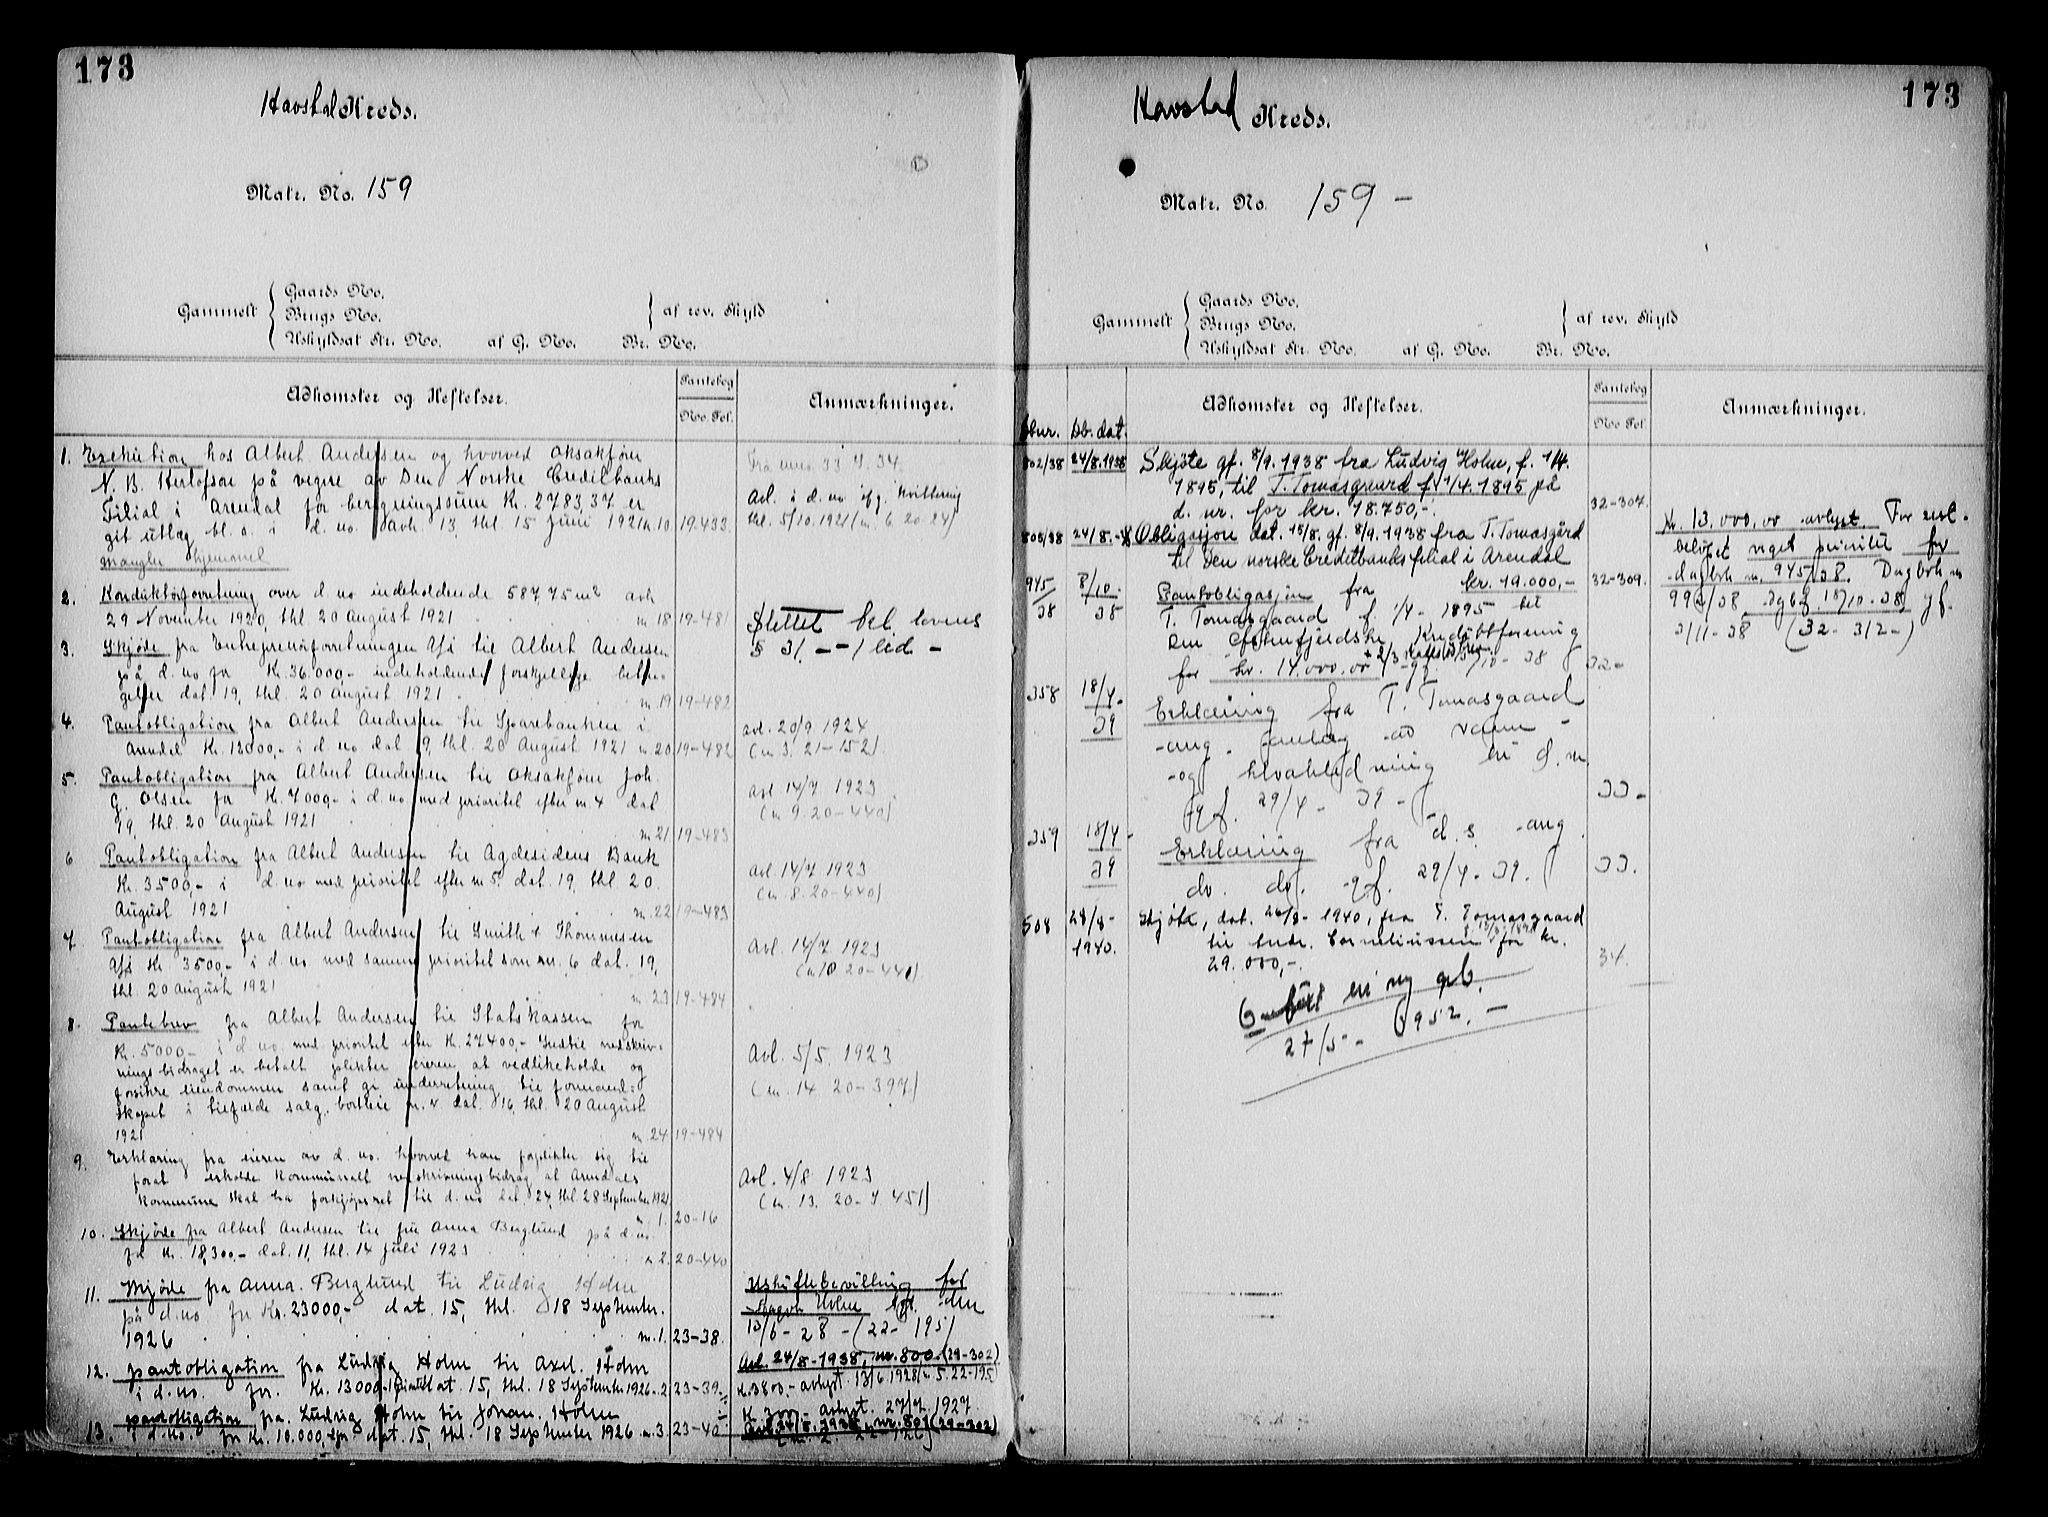 173
Havstad Kreds.
Matr. No. 159
Gammelt
Gaards No.
Brugs No.
Uskyldsat Str. No. af G. No. Br. No.
af rev. Skyld
Adkomster og Heftelser.
Pantebog
No. Fol.
Anmærkninger.
1. Exekution hos Albert Andersen og hvorved Oksakfører
N. B. Herlofson på vegne av Den Norske Creditbanks
Filial i Arendal for beregningssum Kr. 2783,37 er
git utlæg bl. a. i d. no. avh. 13, thl. 15 juni 1921 n. 10 19-433
mangler hjemmel
Avl. i d. no ifg. kvittering
thl. 5/10. 1921 (n. 6. 20-24)
2. Konduktørforretning over d no indeholdende 587,75 m2 avh
29 November 1920, thl. 20 August 1921 n 18 19-481
Slettet hel. lovens
§ 31.
3. Skjøde fra Entreprenørforretningen A/s til Albert Andersen
på d. no for Kr. 36.000,- indeholdende forskjellige betin-
gelser dat 19, thl. 20 August 1921 n. 19 19-482
4. Pantobligation fra Albert Andersen til Sparebanken i
Arendal Kr. 12000,- i d no dat 19, thl. 20 August 1921 n 20 19-482
avl. 20/9 1924
(n 3. 21-152)
5. Pantobligation fra Albert Andersen til Oksakfører Joh.
G. Olsen for Kr. 7000,- i d. no med prioritet efter n 4 dat
19, thl. 20 August 1921 n. 21 19-483
avl 14/7 1923
(n 9. 20-440)
6 Pantobligation fra Albert Andersen til Agdesidens Bank
Kr. 3500,- i d. no med prioritet efter n 5. dat. 19, thl. 20.
August 1921 n. 22 19-483
Avl. 14/7 1923
(n. 8. 20-440)
7. Pantobligation fra Albert Andersen til Smith & Thommesen
A/s Kr. 3500,- i d. no med samme prioritet som nr. 6 dat. 19,
thl. 20 August 1921 n. 23 19-484
Avl. 14/7 1923
(n 10 20-440)
8. Pantebrev fra Albert Andersen til Statskassen for
Kr. 5000,- i d no. med prioritet efter Kr. 27400,- Indtil nedskriv-
ningsbidraget er betalt plikter eieren at vedlikeholde og
forsikre eiendommen samt gi underretning til formand-
skapet i tilfælde salg, bortleie m. v dat. 16, thl. 20 August
1921 n. 24 19-484
Avl. 5/5 1923
(n. 14 20-397)
9. Erklæring fra eieren av d. no. hvorved han forplikter sig til
for at erholde kommunalt nedskrivningsbidrag at Arendals
kommune skal ha forkjøpsret til d. no dat. 24, thl. 28 September 1921
n 1. 20-16
Avl. 4/8 1923
(n. 13. 20-451)
10. Skjøde fra Albert Andersen til fru Anna Berglund på d. no
for Kr. 18,300,- dat. 11, thl. 14 juli 1923 n 2. 20-440
11. Skjøde fra Anna Berglund til Ludvig Holm
på d. no for Kr. 23000,- dat. 15, thl. 18 September
1926 n. 1. 23-38.
Uskiftebevilling for
Holm den
13/6-28-(22-195)
12. Pantobligation fra Ludvig Holm til Axel Holm
i d. no. for Kr. 13000,- dat. 15, thl. 18 September 1926 n. 2. 23-39.
Avl. 24/8-1938, nr. 800. (29-302)
K. 3800,- avlyst 13/6 1928 (n. 5. 22-195)
13. Pantobligation fra Ludvig Holm til Johan Holm
i d. no. for Kr. 10.000,- dat. 15, thl. 18 September 1926 n. 3. 23-40
avlyst. 27/7 1927
Avl. 24/8.1938, nr. 801 (29-302)
173
Havstad Kreds.
Matr. No. 159 -
Gammelt
Gaards No.
Brugs No.
Uskyldsat Str. No. af G. No. Br. No.
af rev. Skyld
Dbnr. Db. dat.
Adkomster og Heftelser.
Pantebog
No Fol.
Anmærkninger.
802/38 24/8.1938 Skjøte gf. 8/9.1938 fra Ludvig Holm, f. 1/4.
1895, til T. Tomasgaard f. 1/4.1895 på
d. nr. for kr. 18.750,-. 32-307.
803/38 24/8.-38 Obligasjon dat. 15/8. gf. 8/9.1938 fra T. Tomasgård
til Den norske Creditbanks filial i Arendal
kr. 19.000,- 32-309.
Kr. 13.000,00 avlyst. For rest-
beløpet veget prioritet for
dagbok n. 945/38. Dagbok n
992/38. Dgbf. 18/10-38 gf.
3/11-38 (32-312-)
945/38 8/10.38 Pantobligasjon fra
T. Tomasgaard f. 1/4-1895 til
Den Vestenfjeldske Kredittforening
for kr. 14.000.00 38 32-
358 18/4.39 Erklæring fra T. Tomasgaard
-ang. anlæg av vann-
-og kloakledning til d. n.
gf. 29/4-39- 33-
359 18/4-39 Erklæring fra d. s. ang.
do. do. gf. 29/4.39. 33.
508 28/8-1940. Skjøte, dat. 26/8-1940, fra T. Tomasgaard
til Corneliussen for kr.
29.000,-. 34.
Overført til ny gb.
27/5- 1952.-